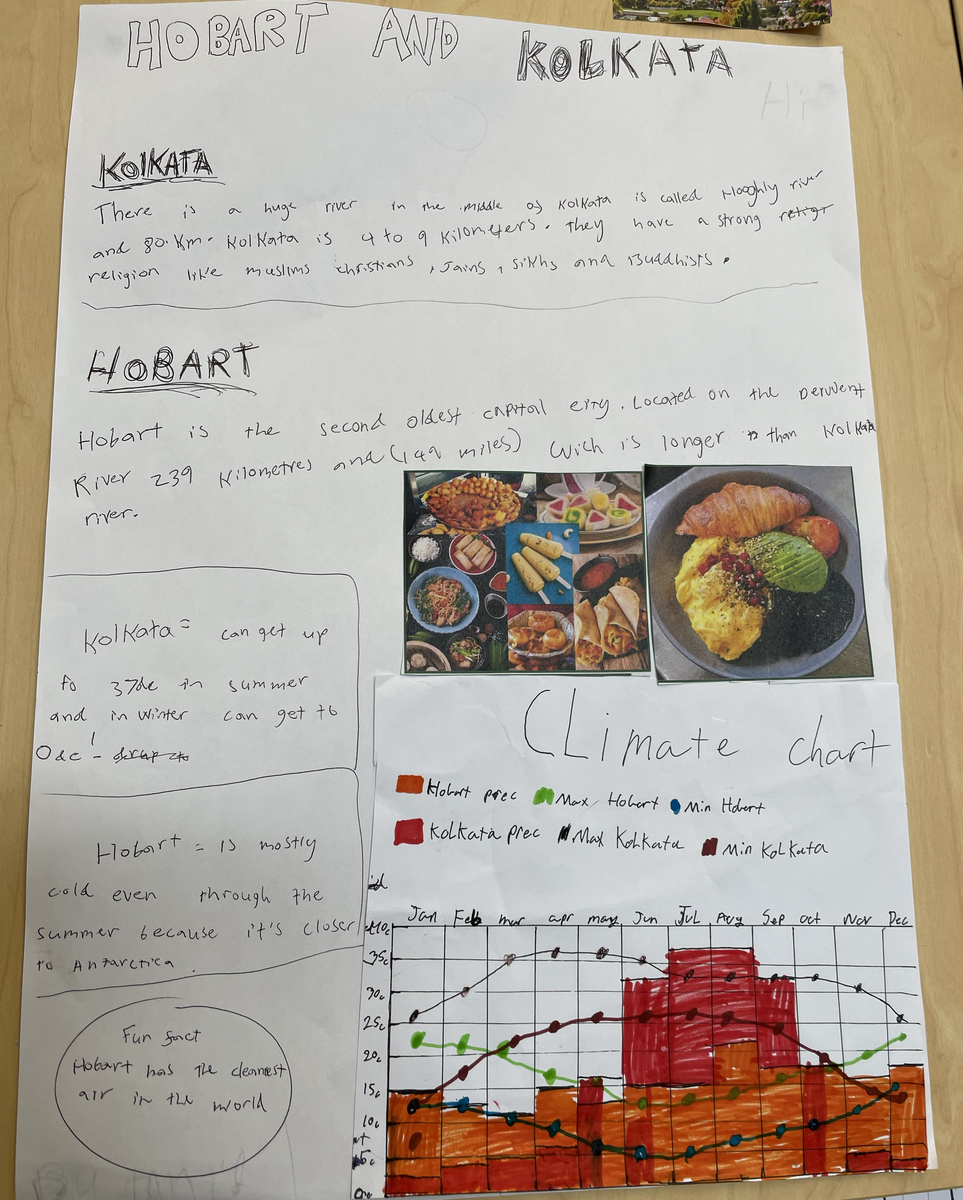 HOBART AND KOLKATA
Hi
KOlKATA
There is a huge river in the middle of Kolkata is called Hooghly river
and 80.Km. Kolkata is 4 to 9 kilometers. They have a strong
religion like muslims christians, Jains, sikhs and Buddhists.
HOBART
Hobart is the second oldest capital city. Located on the Derwent
River 239 kilometres and (149 miles) wich is longer than Kolkata
river.
Kolkata= can get up
to 37de in summer
and in winter can get to
Hobart = is mostly
cold even through the
summer because it's closer
to Antarctica.
Fun fact
Hobart has the cleanest
air in the world
CLimate chart
Hobart prec Max Hobart Min Hobart
Kolkata prec Max Kolkata Min Kolkata
Jan Feb mar apr may Jun Jul Aug Sep oct Nov Dec
40c
35c
30c
25c
20c
15c
10c
5c
0c